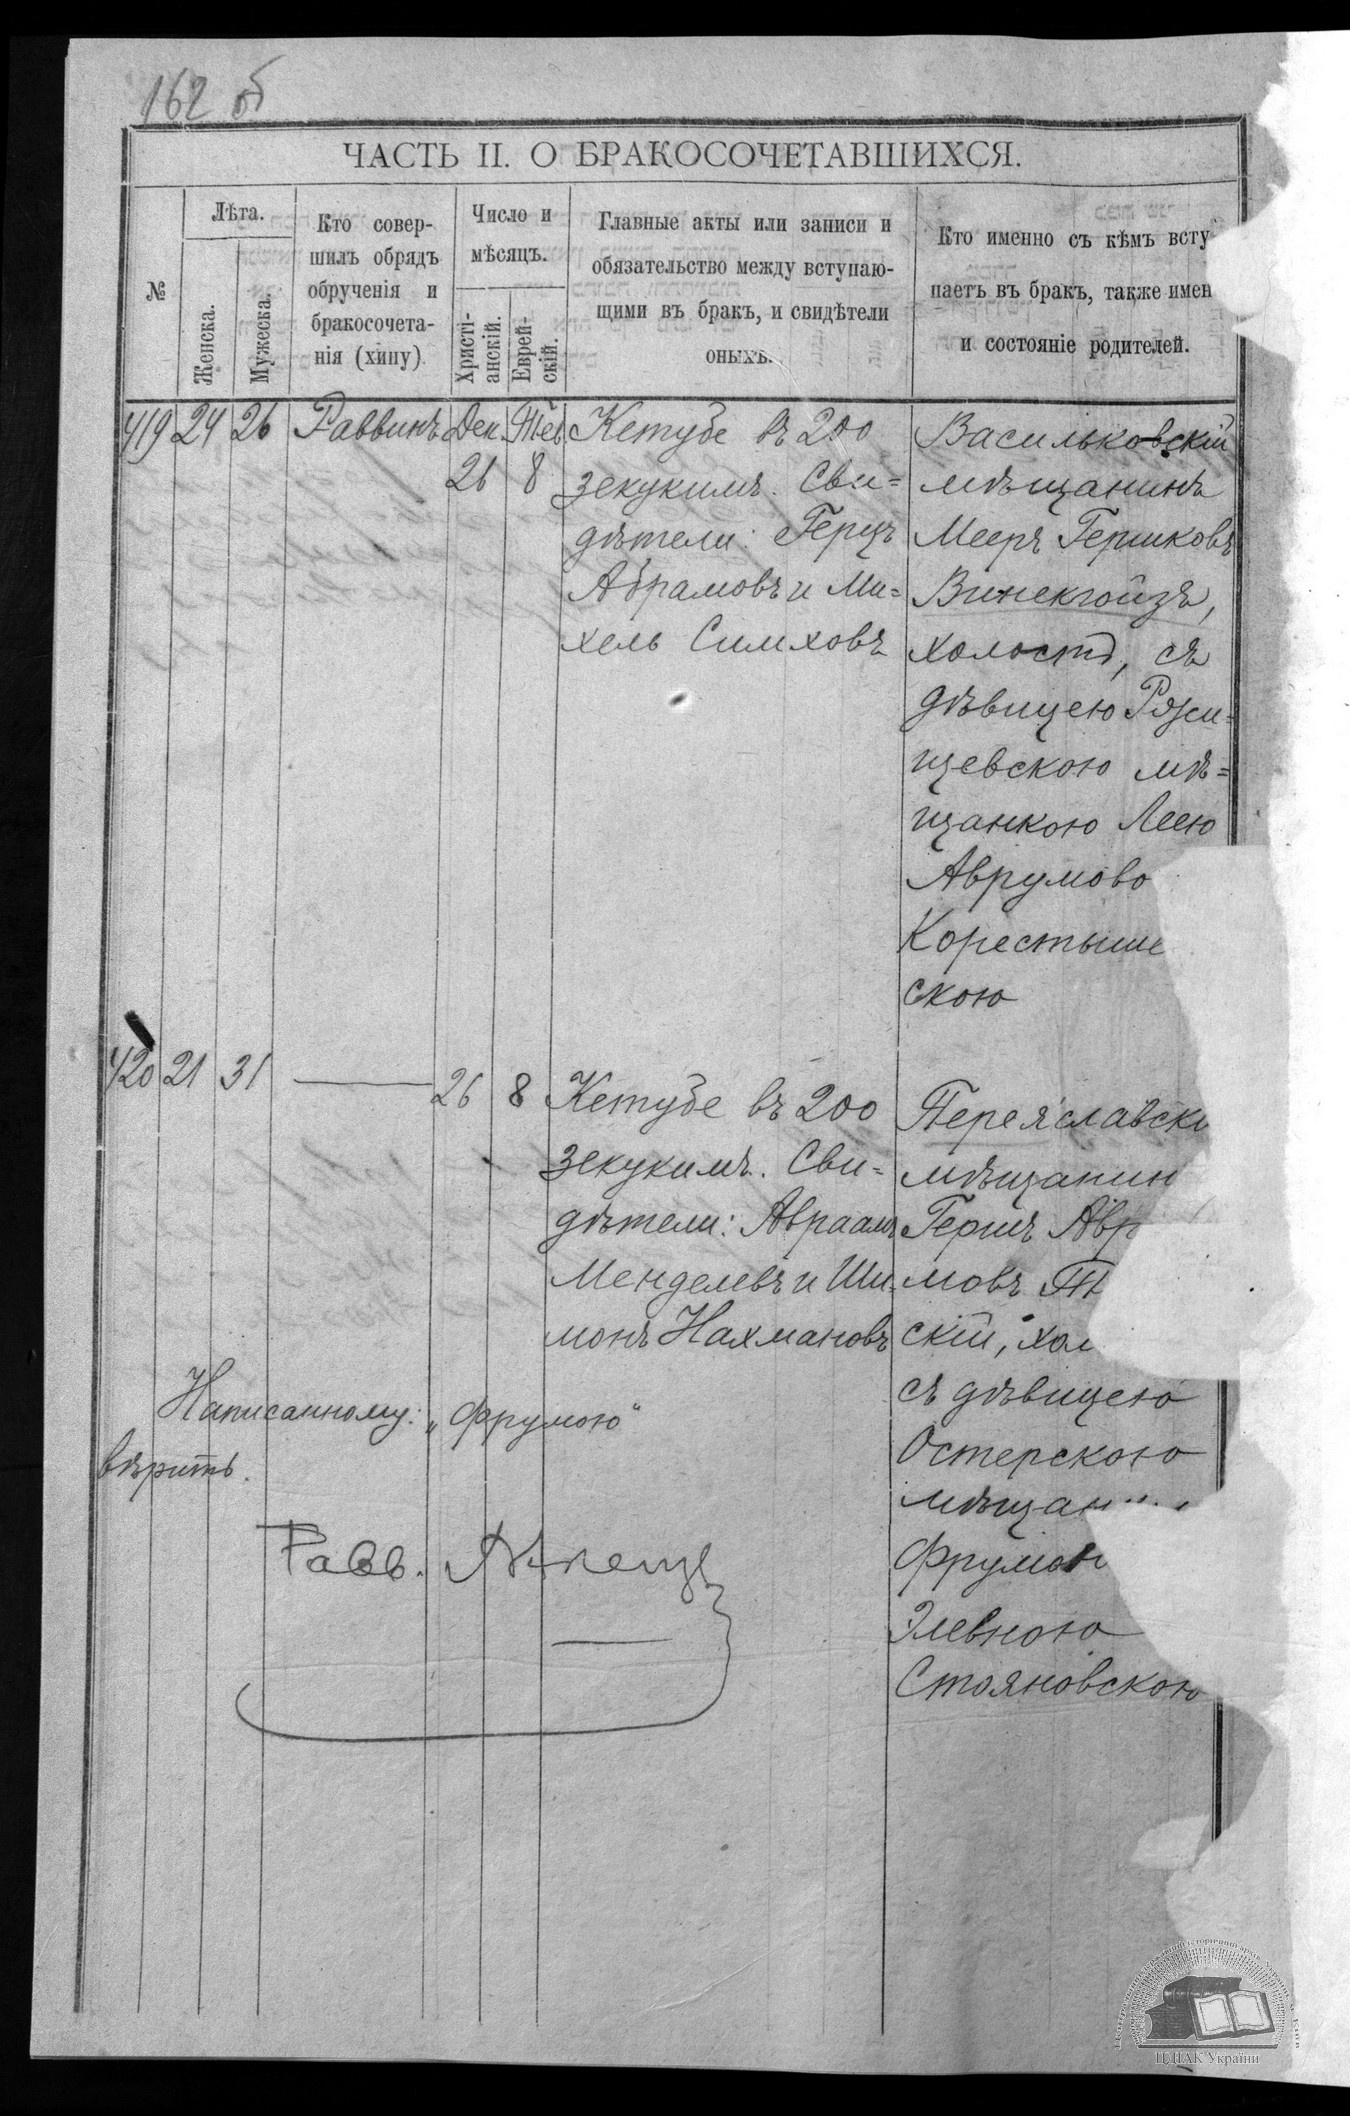 162 об
ЧАСТЬ II. О БРАКОСОЧЕТАВШИХСЯ.
№
Лѣта.
Женска.
Мужеска.
Кто совер-
шилъ обрядъ
обрученія и
бракосочета-
нія (хипу)
Число и
мѣсяцъ.
Христі-
анскій.
Еврей-
скій.
Главные акты или записи и
обязательство между вступаю-
щими въ бракъ, и свидѣтели
оныхъ.
Кто именно съ кѣмъ всту
паетъ въ бракъ, также имен
и состояніе родителей.
419 24 26 Раввинъ Дек. Тев
26 8
Кетубе въ 200
зекукимъ. Сви=
дѣтели: Герцъ
Абрамовъ и Ми=
хель Симховъ
Васильковскій
мѣщанинъ
Мееръ Гершковъ
Винекгойзъ,
холостъ, съ
дѣвицею Ржи=
щевскою мѣ=
щанкою Леею
Аврумово
Коростыше
скою
420 21 31 — 26 8
Кетубе въ 200
зекукимъ. Сви=
дѣтели: Авраамъ
Менделевъ и Ши=
монъ Нахмановъ
Переяславскі
мѣщанин
Гершъ Авр
мовъ
скій, хол
съ дѣвицею
Остерскою
мѣщан
Фрумою
Элевною
Стояновскою
Написанному: „Фрумою“
вѣрить.
Равв.
ЦДІАК України